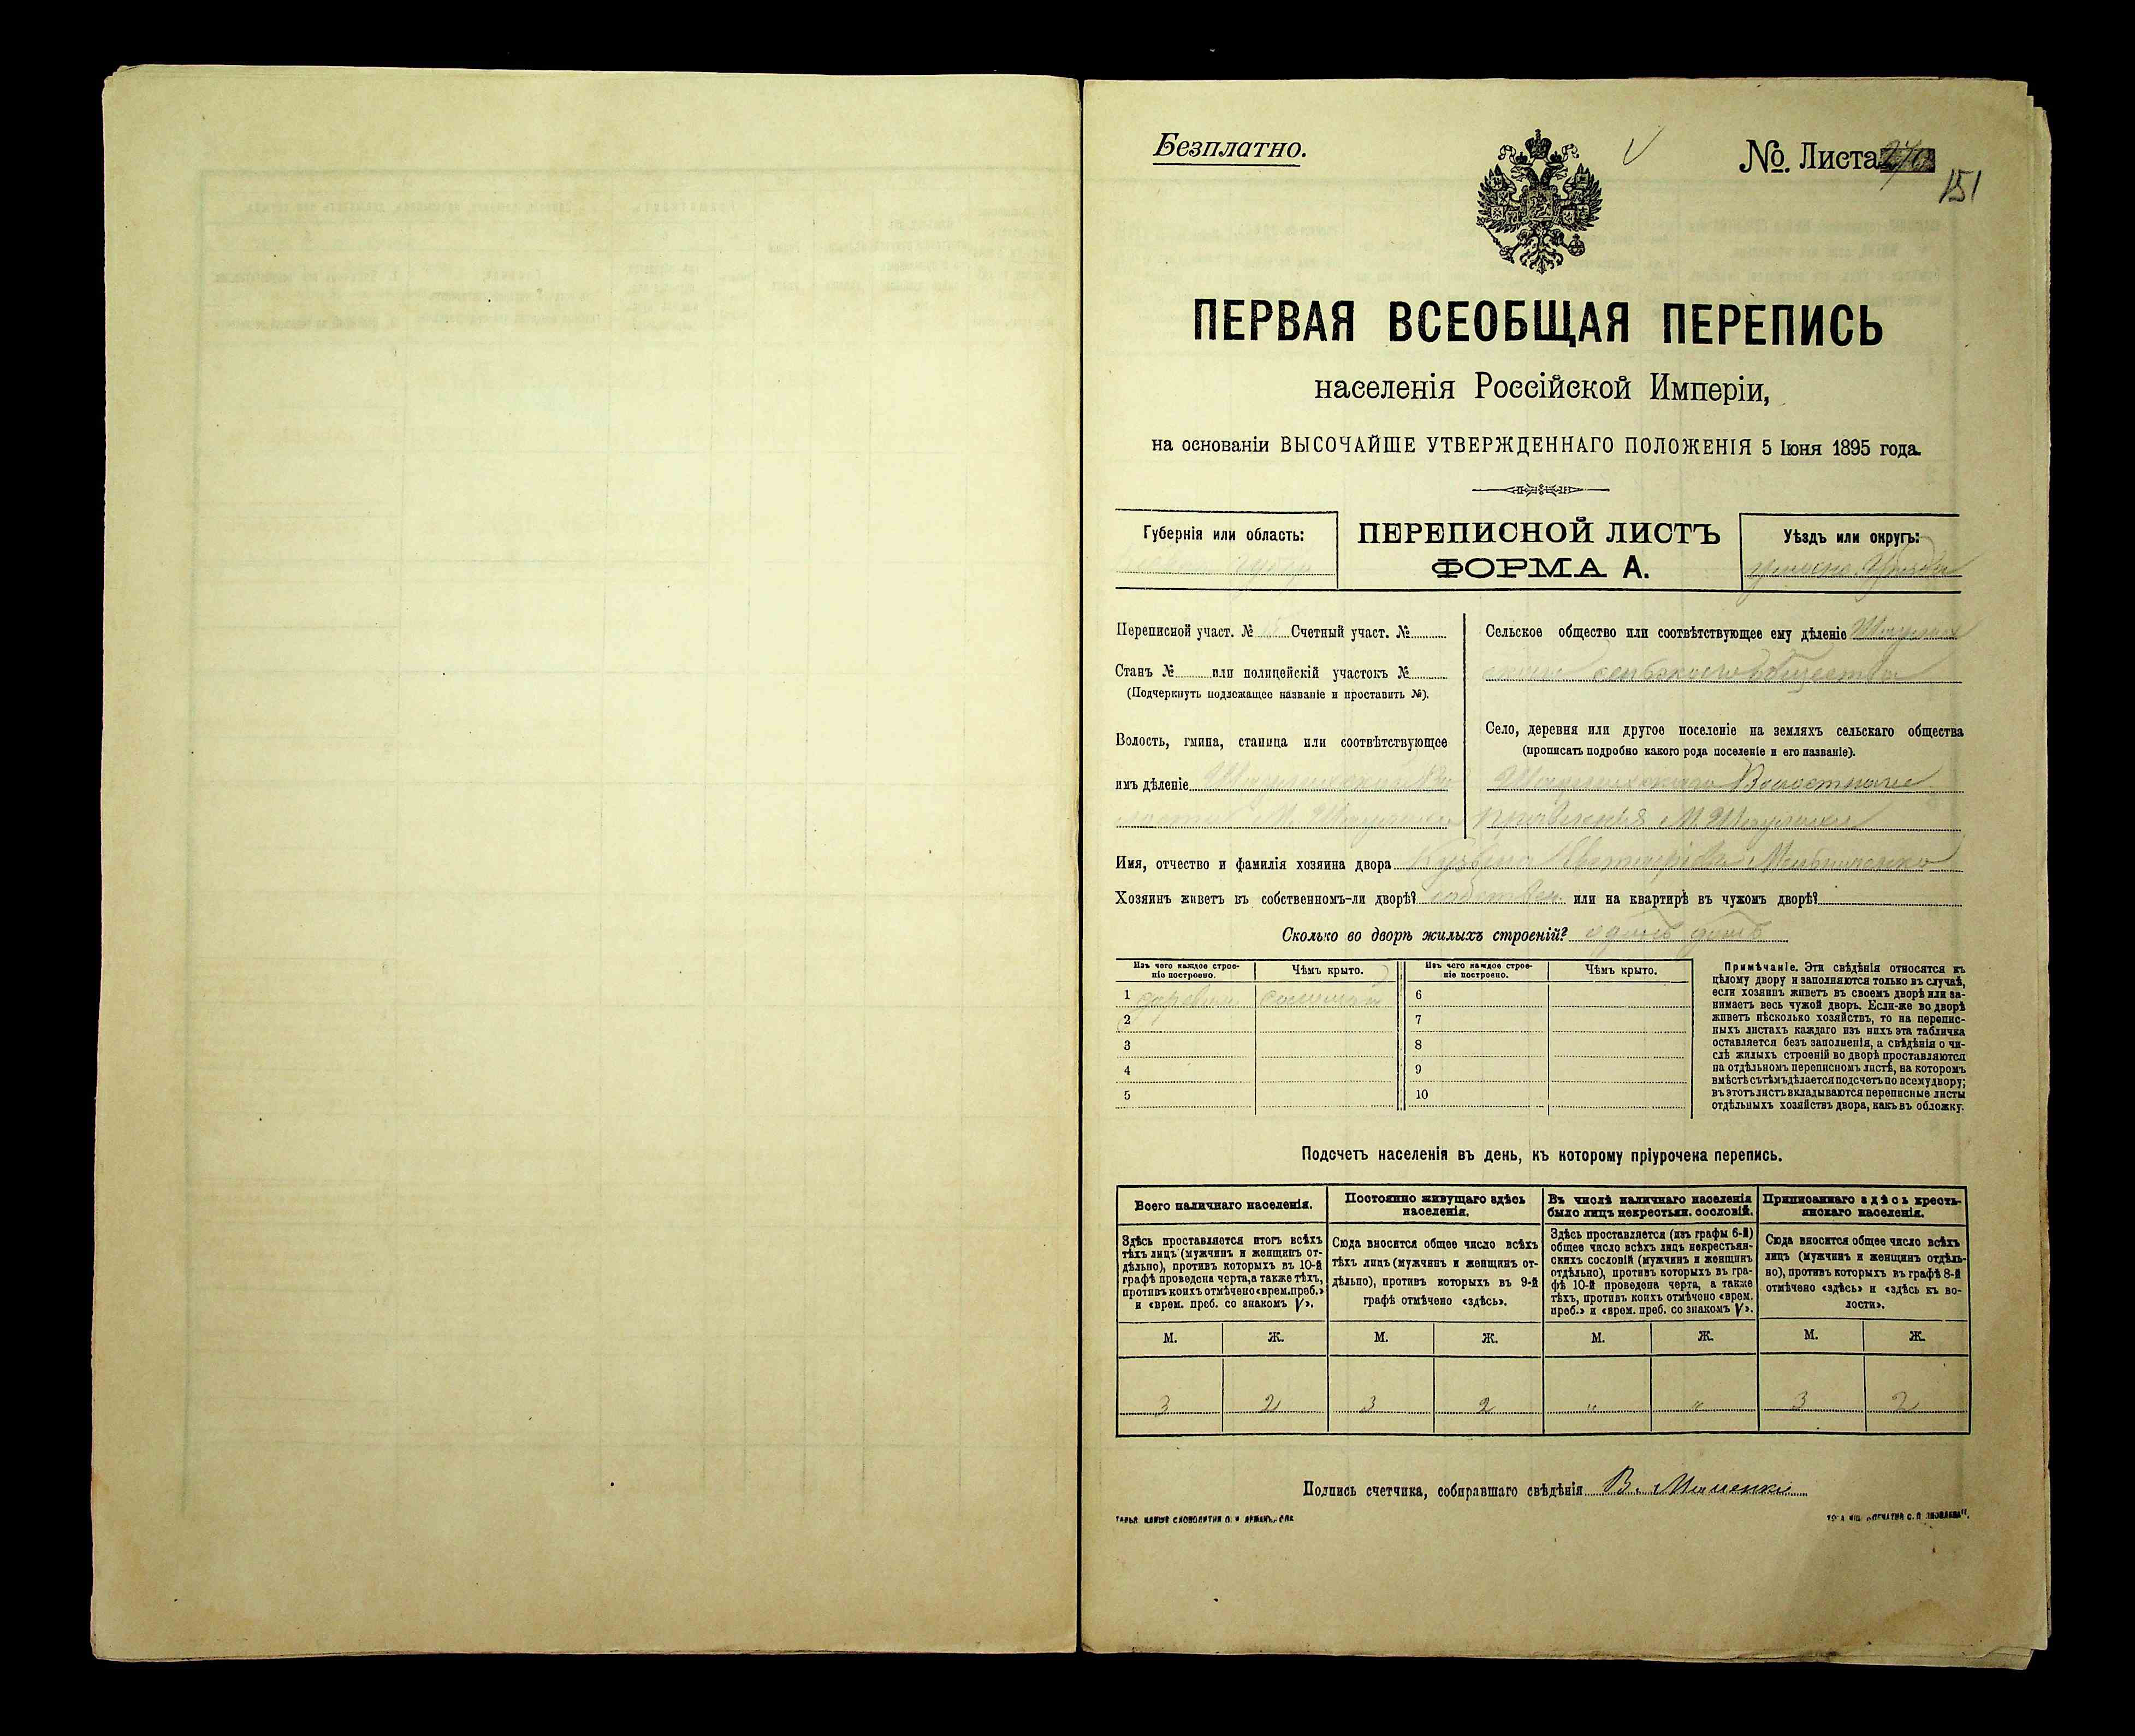 Безплатно.
№. Листа
151
ПЕРВАЯ ВСЕОБЩАЯ ПЕРЕПИСЬ
населенія Россійской Имперіи,
на основаніи ВЫСОЧАЙШЕ УТВЕРЖДЕННАГО ПОЛОЖЕНІЯ 5 Іюня 1895 года.
Губернія или область:
ПЕРЕПИСНОЙ ЛИСТЪ
ФОРМА А.
Уѣздъ или округъ:
Переписной участ. № Счетный участ. №
Станъ № или полицейскій участокъ №
(Подчеркнуть подлежащее названіе и проставить №).
Волость, гмина, станица или соотвѣтствующее
имъ дѣленіе
Сельское общество или соотвѣтствующее ему дѣленіе
сельскаго общества
Село, деревня или другое поселеніе на земляхъ сельскаго общества
(прописать подробно какого рода поселеніе и его названіе).
Волостного
Правленія М.
Имя, отчество и фамилія хозяина двора
Хозяинъ живетъ въ собственномъ-ли дворѣ? собствен. или на квартирѣ въ чужомъ дворѣ?
Сколько во дворѣ жилыхъ строеній? одинъ домъ
Изъ чего каждое строе-
ніе построено.
Чѣмъ крыто.
Изъ чего каждое строе-
ніе построено.
Чѣмъ крыто.
1 6
2 7
3 8
4 9
5 10
Примѣчаніе. Эти свѣдѣнія относятся къ
цѣлому двору и заполняются только въ случаѣ,
если хозяинъ живетъ въ своемъ дворѣ или за-
нимаетъ весь чужой дворъ. Если-же во дворѣ
живетъ нѣсколько хозяйствъ, то на перепис-
ныхъ листахъ каждаго изъ нихъ эта табличка
оставляется безъ заполненія, а свѣдѣнія о чи-
слѣ жилыхъ строеній во дворѣ проставляются
на отдѣльномъ переписномъ листѣ, на которомъ
вмѣстѣ съ тѣмъ дѣлается подсчетъ по всему двору;
въ этотъ листъ вкладываются переписные листы
отдѣльныхъ хозяйствъ двора, какъ въ обложку.
Подсчетъ населенія въ день, къ которому пріурочена перепись.
Всего наличнаго населенія.
Здѣсь проставляется итогъ всѣхъ
тѣхъ лицъ (мужчинъ и женщинъ от-
дѣльно), противъ которыхъ въ 10-й
графѣ проведена черта, а также тѣхъ,
противъ коихъ отмѣчено «врем. преб.»
и «врем. преб. со знакомъ V».
Постоянно живущаго здѣсь
населенія.
Сюда вносится общее число всѣхъ
тѣхъ лицъ (мужчинъ и женщинъ от-
дѣльно), противъ которыхъ въ 9-й
графѣ отмѣчено «здѣсь».
Въ числѣ наличнаго населенія
было лицъ некрестьян. сословій.
Здѣсь проставляется (изъ графы 6-й)
общее число всѣхъ лицъ некрестьян-
скихъ сословій (мужчинъ и женщинъ
отдѣльно), противъ которыхъ въ гра-
фѣ 10-й проведена черта, а также
тѣхъ, противъ коихъ отмѣчено «врем.
преб.» и «врем. преб. со знакомъ V».
Приписаннаго здѣсь кресть-
янскаго населенія.
Сюда вносится общее число всѣхъ
лицъ (мужчинъ и женщинъ отдѣль-
но), противъ которыхъ въ графѣ 8-й
отмѣчено «здѣсь» и «здѣсь къ во-
лости».
М. Ж. М. Ж. М. Ж. М. Ж.
3 2 3 2 " " 3 2
Подпись счетчика, собиравшаго свѣдѣнія